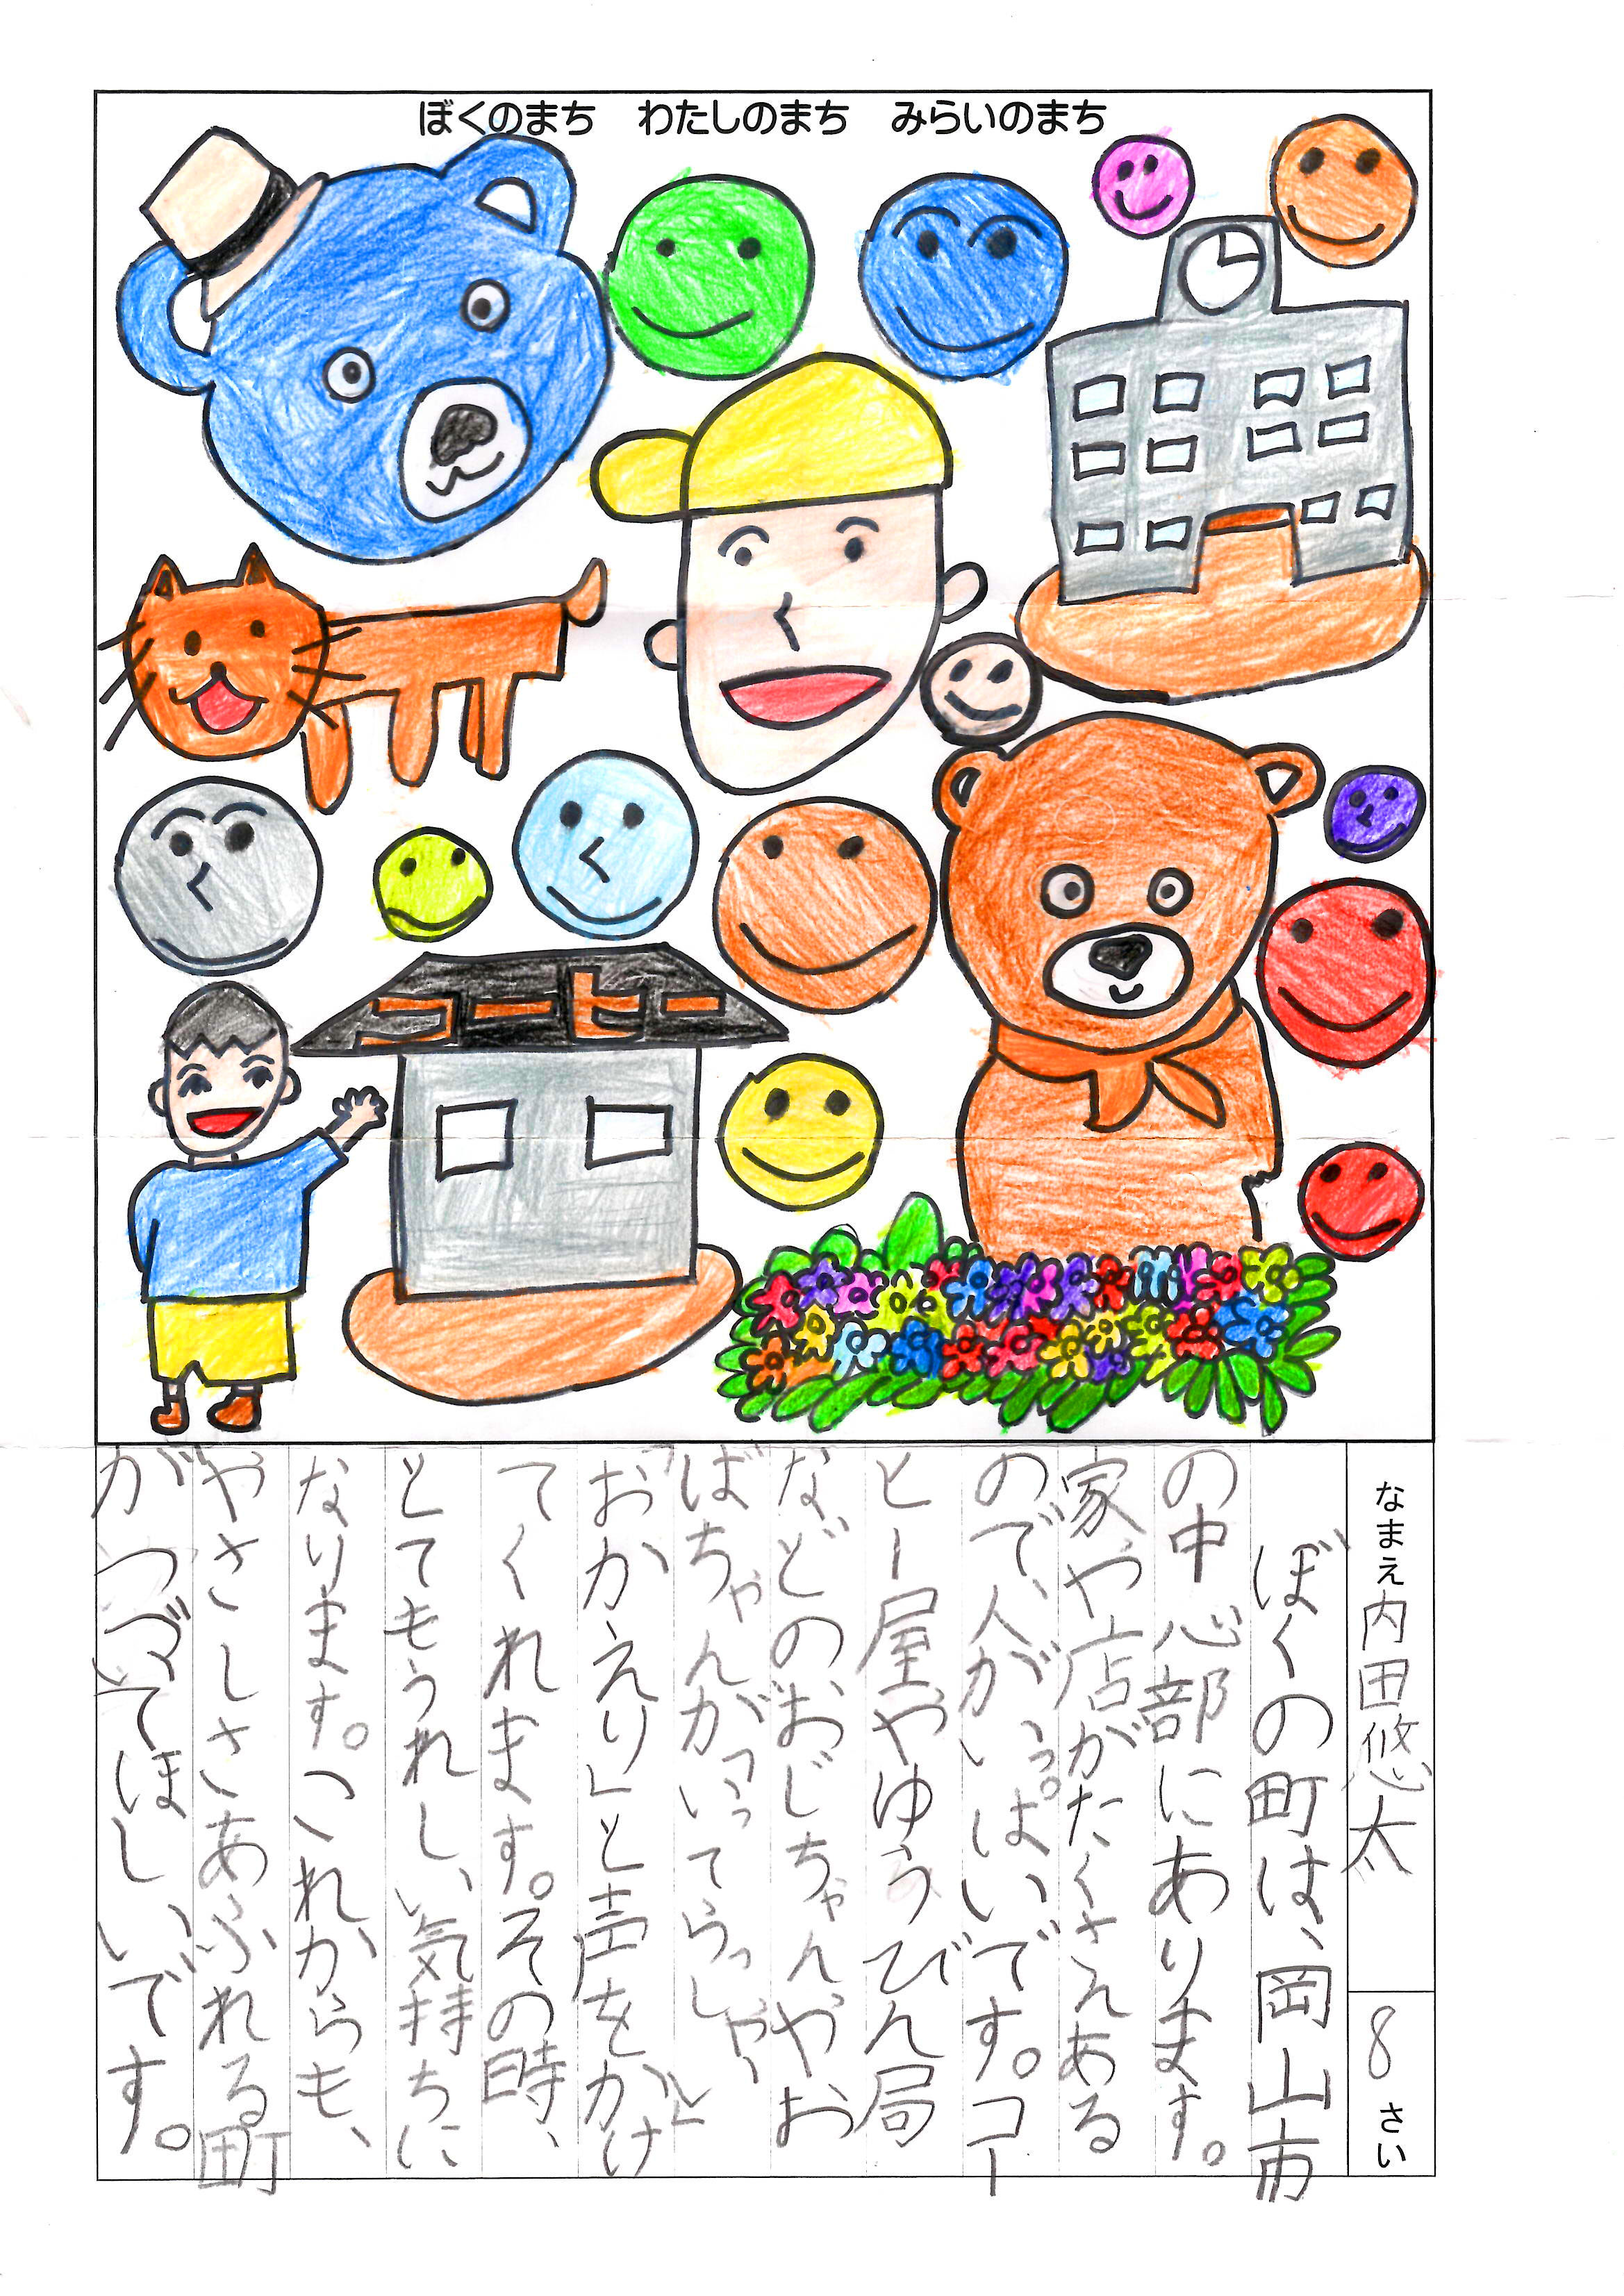 ぼくのまち　わたしのまち　みらいのまち
コーヒー
なまえ 内田悠太
8 さい
ぼくの町は、岡山市
の中心部にあります。
家や店がたくさんある
ので、人がいっぱいです。コー
ヒー屋やゆうびん局
などのおじちゃんやお
ばちゃんが「いってらっしゃい」
「おかえり」と声をかけ
てくれます。その時、
とてもうれしい気持ちに
なります。これからも、
やさしさあふれる町
がつづいてほしいです。